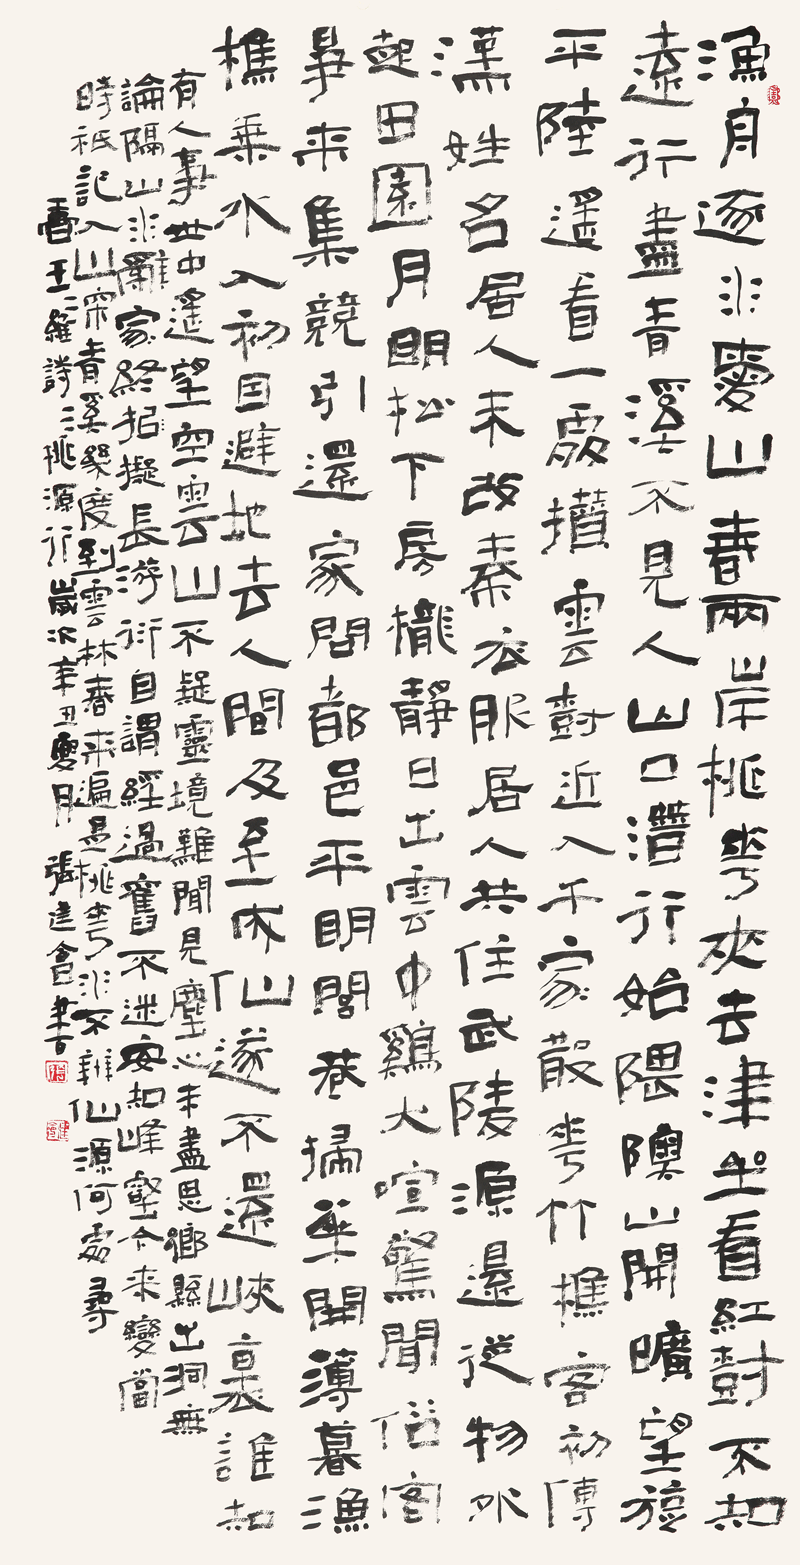 漁舟逐水愛山春兩岸桃花夾去津坐看紅樹不知
遠行盡青溪不見人山口潛行始隈隩山開曠望旋
平陸遙看一處攢雲樹近入千家散花竹樵客初傳
漢姓名居人未改秦衣服居人共住武陵源還從物外
起田園月明松下房櫳靜日出雲中鷄犬喧驚聞俗客
爭來集競引還家問都邑平明閭巷掃花開薄暮漁
樵乘水入初因避地去人間及至成仙遂不還峽裏誰知
有人事世中遙望空雲山不疑靈境難聞見塵心未盡思鄉縣出洞無
論隔山水辭家終招擬長游衍自謂經過舊不迷安知峰壑今來變當
時祇記入山深青溪幾度到雲林春來遍是桃花水不辨仙源何處尋
書王維詩桃源行歲次辛丑夏月張建會書